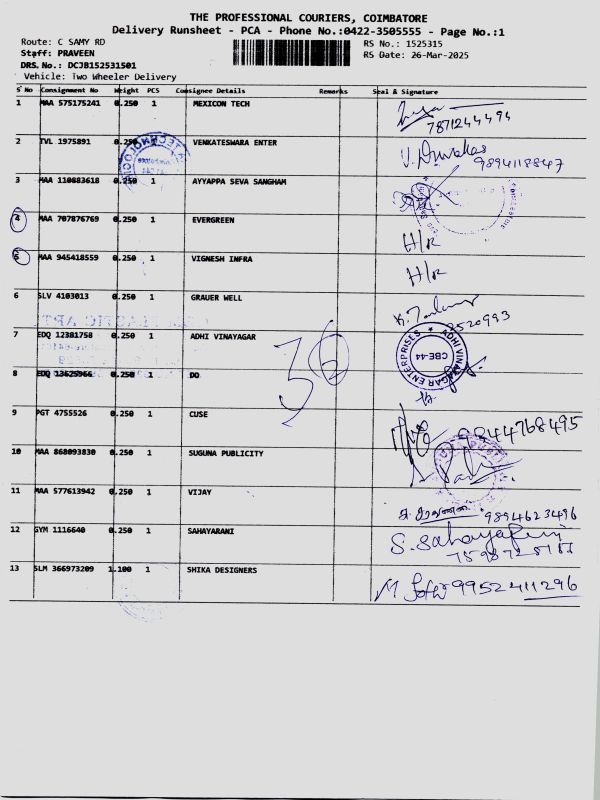 THE PROFESSIONAL COURIERS, COIMBATORE
Delivery Runsheet - PCA - Phone No.:0422-3505555 - Page No.:1
Route: C SAMY RD
RS No.: 1525315
Staff: PRAVEEN
RS Date: 26-Mar-2025
DRS. No.: DCJB152531501
Vehicle: Two Wheeler Delivery
S No Consignment No Weight PCS Consignee Details Remarks Seal & Signature
1 MAA 575175241 0.250 1 MEXICON TECH
7871244494
2 TVL 1975891 0.250 VENKATESWARA ENTER
9894118847
3 MAA 110883618 0.250 1 AYYAPPA SEVA SANGHAM
4 MAA 707876769 0.250 1 EVERGREEN H/R
5 MAA 945418559 0.250 1 VIGNESH INFRA H/R
6 SLV 4103013 0.250 1 GRAUER WELL
7 EDQ 12381758 0.250 1 ADHI VINAYAGAR
ADHI VINAYAGAR ENTERPRISES
CBE-44
8 EDQ 13625966 0.250 1 DO
36
9 PGT 4755526 0.250 1 CUSE 9844768495
10 MAA 868093830 0.250 1 SUGUNA PUBLICITY
11 MAA 577613942 0.250 1 VIJAY
9894623496
12 GYM 1116640 0.250 1 SAHAYARANI
13 SLM 366973209 1.100 1 SHIKA DESIGNERS
9952411296